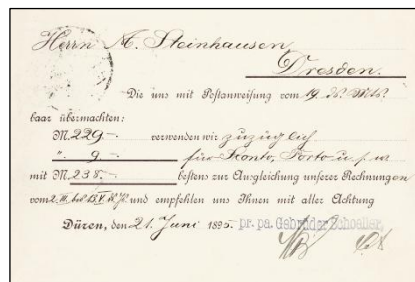 Herrn A. Steinhausen,
Dresden.
Die uns mit Postanweisung vom 19. ds. Mts.
baar übermachten:
M. 229.- verwenden wir zuzüglich
" 9.- für Konto, Porto u. s. w.
mit M. 238.- bestens zur Ausgleichung unserer Rechnungen
vom und empfehlen uns Ihnen mit aller Achtung
Düren, den 21. Juni 1895. pr. pa. Gebrüder Schoeller,